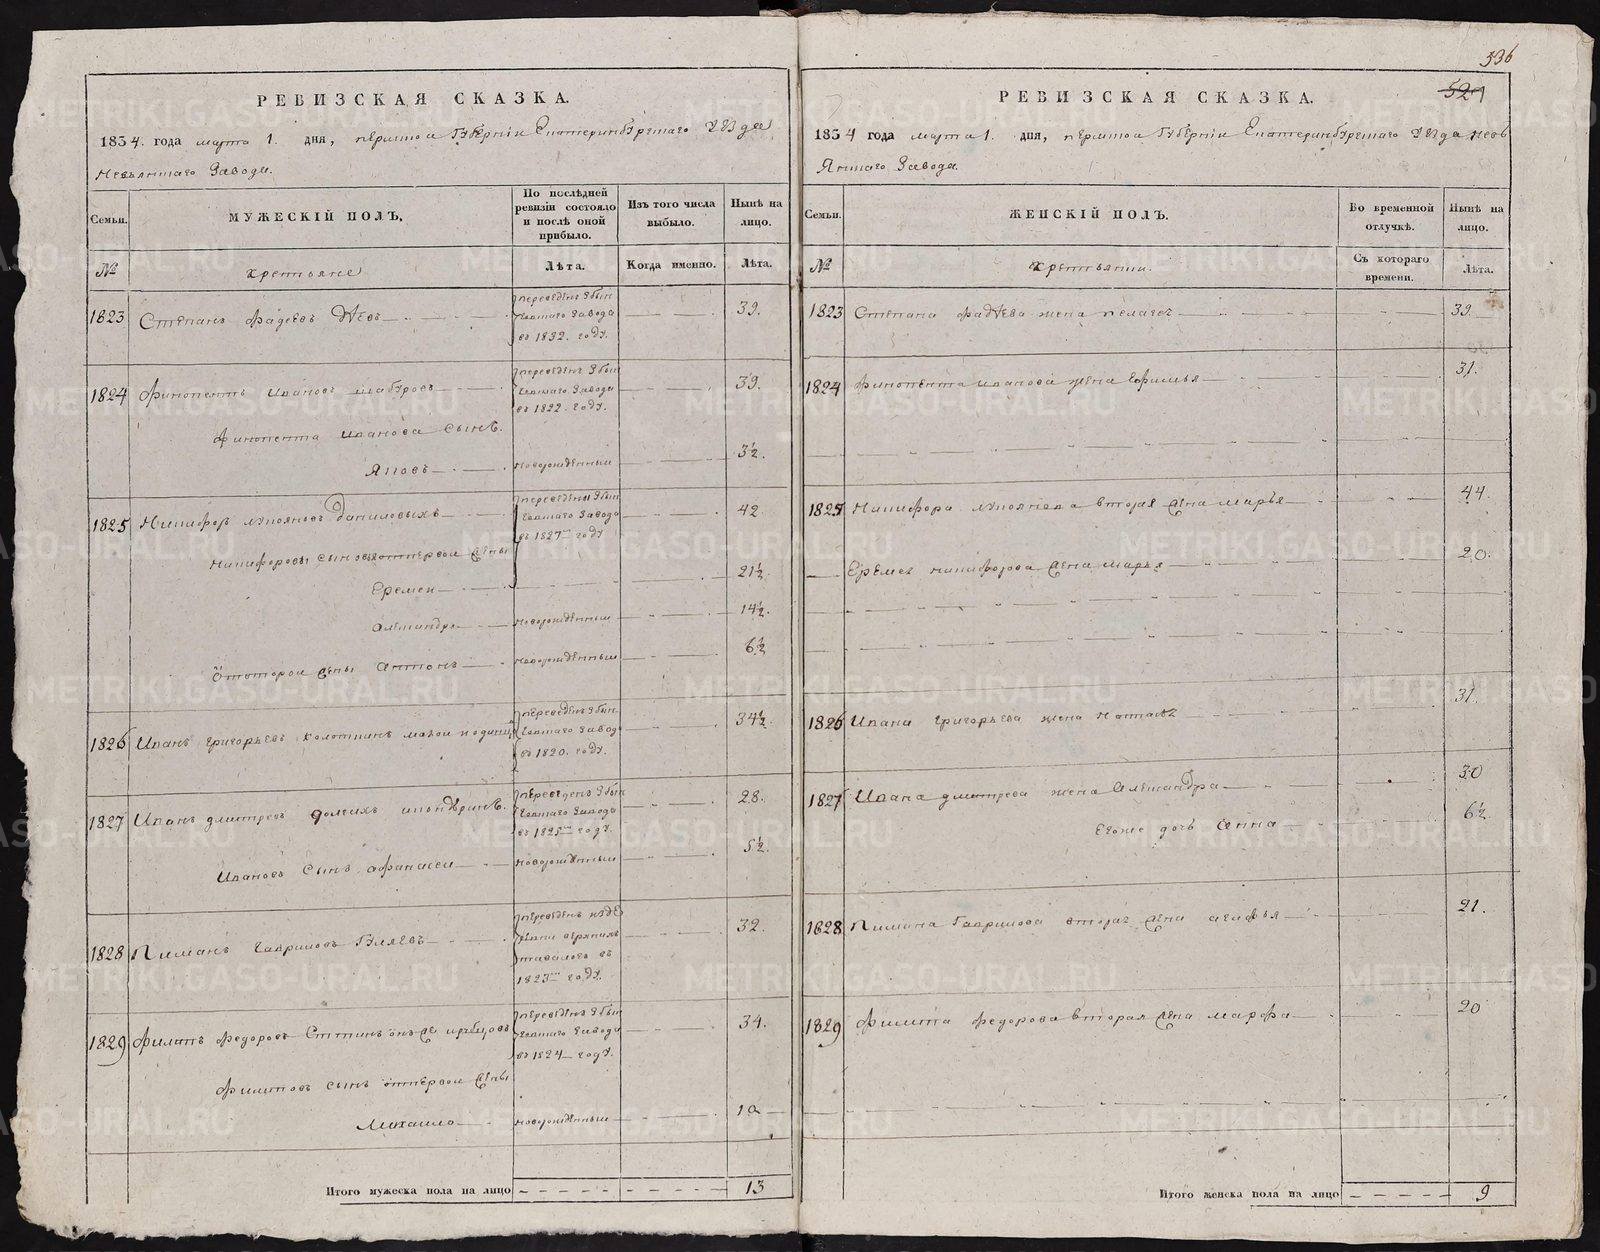 536
РЕВИЗСКАЯ СКАЗКА.
1834. года марта 1. дня, пермской Губернiи Екатеринбургскаго Уезда
Невьянскаго Завода.
Семьи.
МУЖЕСКIЙ ПОЛЪ.
По послѣдней ревизiи состояло и послѣ оной прибыло.
Изъ того числа выбыло.
Нынѣ на лицо.
№
крестьяне
Лѣта.
Когда именно.
Лѣта.
1823 Степанъ Фадеевъ
переведенъ
скаго завода
въ 1832. году.
39.
1824 Иванов Шабуров
переведенъ
скаго Завода
въ 1822. году.
39.
Иванова сынъ.
Яковъ
новорожденный
3½.
1825 Никифоръ Лукояновъ Даниловыхъ
переведены
скаго Завода
въ 1827 году
42
Никифоровы сыновья от первой жены
Еремей
21½
Александръ
новорожденный
14½.
От второй жены Антонъ
новорожденный
6½
1826 Иванъ Григорьевъ
переведенъ
скаго завод
въ 1820. году.
34½.
1827 Иванъ Дмитревъ
переведенъ
скаго Завода
въ 1825 году.
28.
Ивановъ сынъ Афанасей
новорожденный
5½.
1828 Пиманъ Гавриловъ
переведенъ
въ
1823 году.
32.
1829 Федоровъ
переведенъ
скаго Завода
въ 1824 году.
34.
сынъ от первой жены
Михайло
новорожденный
10
Итого мужеска пола на лицо
13
521
РЕВИЗСКАЯ СКАЗКА.
1834 года марта 1. дня, пермской Губернiи Екатеринбургскаго Уезда Невь
Янскаго Завода.
Семьи.
ЖЕНСКIЙ ПОЛЪ.
Во временной отлучкѣ.
Нынѣ на лицо.
№
крестьянки.
Съ котораго времени.
Лѣта.
1823 Степана Фадѣева жена Пелагея
39
1824 Иванова жена Ефимья
31.
1825 Никифора Лукоянова вторая жена Марья
44.
Еремея Никифорова жена Марья
20.
1826 Ивана Григорьева жена Наталья
31.
1827 Ивана Дмитрева жена Александра
30
Его же дочь Анна
6½
1828 Пимана Гаврилова вторая жена Агафья
21.
1829 Федорова вторая жена Марфа
20
Итого женска пола на лицо
9